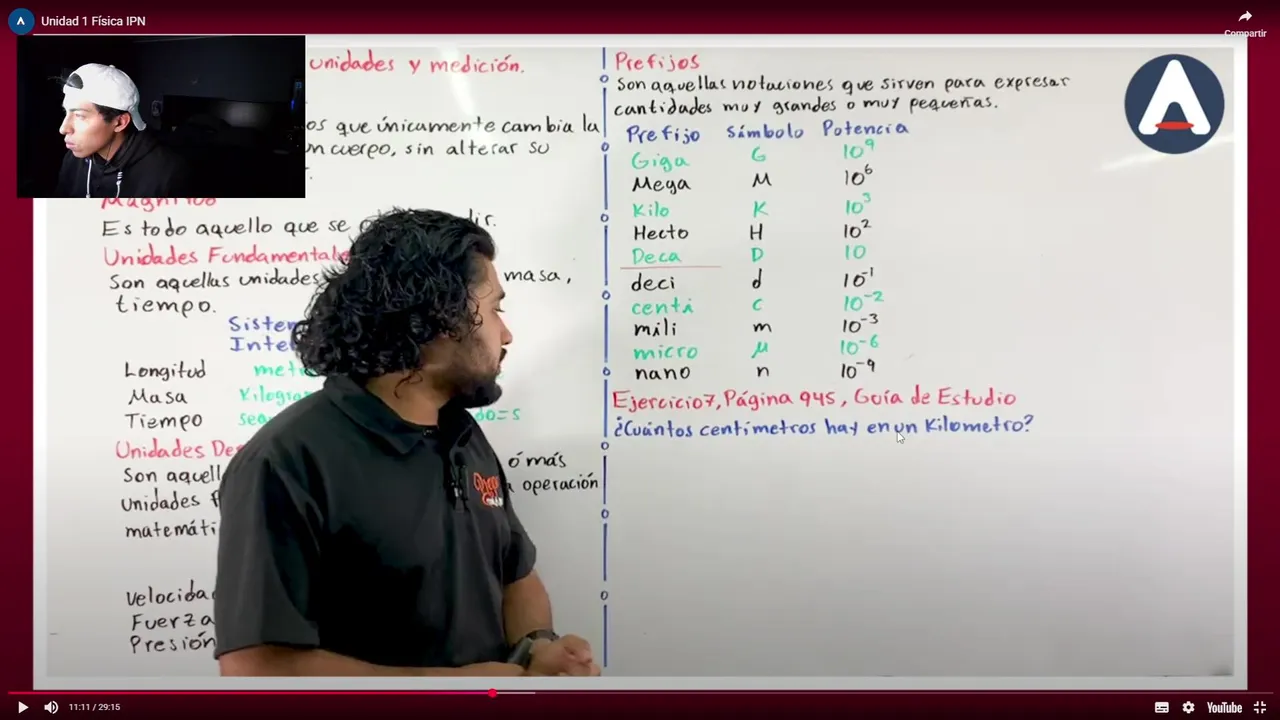 Unidad 1 Física IPN
Compartir
unidades y medición.
os que únicamente cambia la
un cuerpo, sin alterar su
Es todo aquello que se
dir.
Unidades Fundamentale
Son aquellas unidades
masa,
tiempo.
Sistem
Inte
Longitud metr
Masa Kilogra
Tiempo seg
do=s
Unidades De
Son aquell
ó más
Unidades f
operación
matemáti
Velocida
Fuerza
Presión
Prefijos
Son aquellas notaciones que sirven para expresar
cantidades muy grandes o muy pequeñas.
Prefijo Símbolo Potencia
Giga G 10⁹
Mega M 10⁶
Kilo K 10³
Hecto H 10²
Deca D 10
deci d 10⁻¹
centi c 10⁻²
mili m 10⁻³
micro μ 10⁻⁶
nano n 10⁻⁹
Ejercicio 7, Página 945, Guía de Estudio
¿Cuántos centímetros hay en un Kilometro?
11:11 / 29:15
YouTube